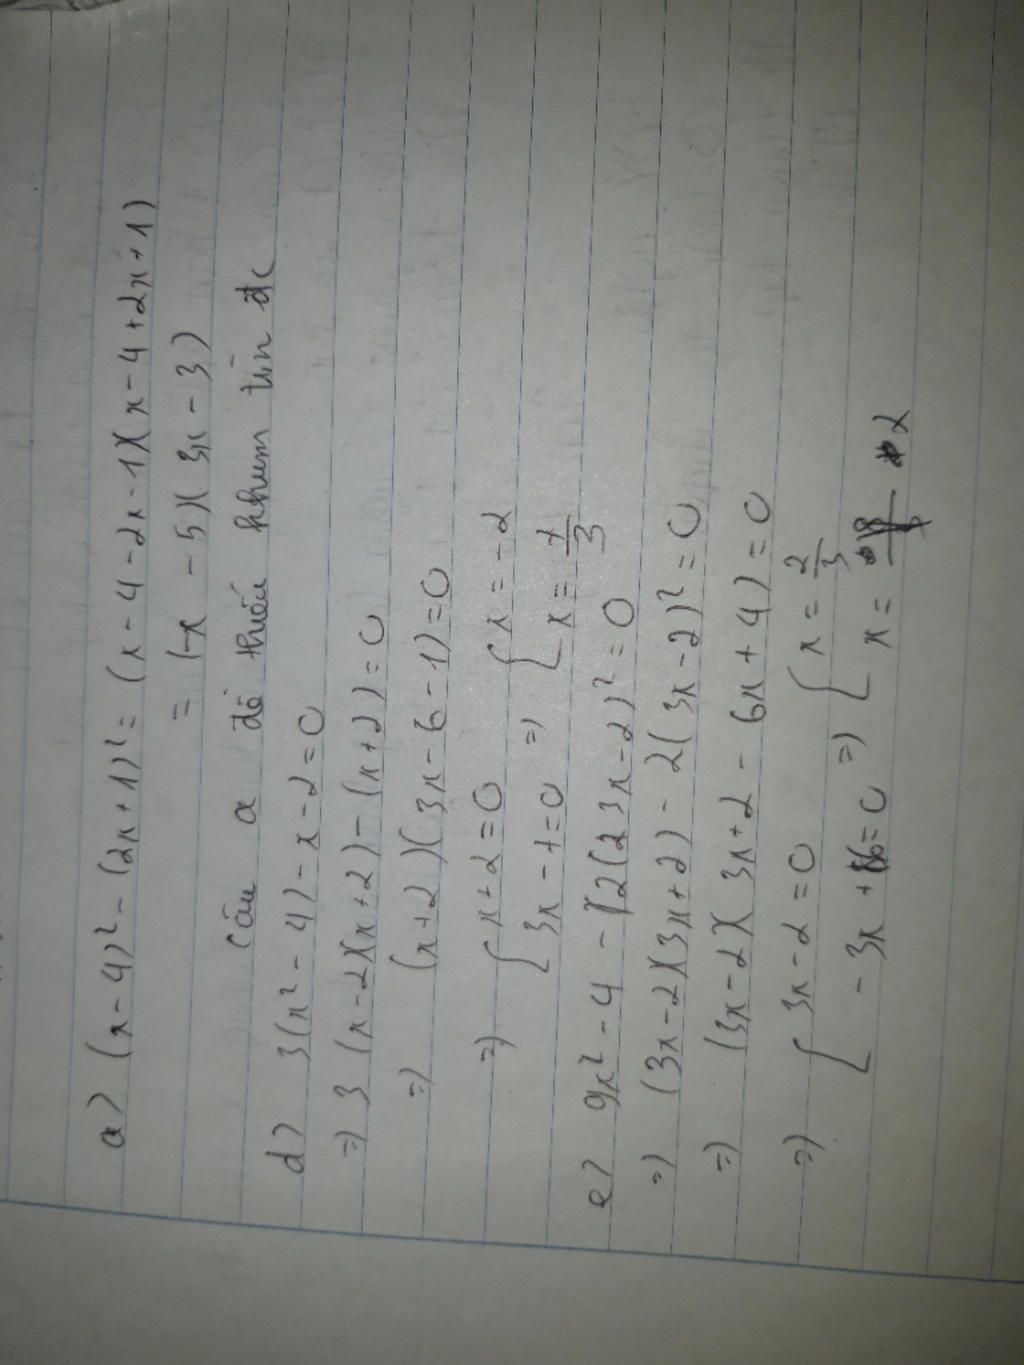 a) (x-4)² - (2x+1)² = (x-4-2x-1)(x-4+2x+1)
= (-x-5)(3x-3)
Câu a đề thiếu khum tìm đc
d) 3(x²-4)-x-2=0
=) 3(x-2)(x+2)-(x+2)=0
=) (x+2)(3x-6-1)=0
=) [ x+2=0 [ x=-2
[ 3x-7=0 =) [ x= 7/3
e) 9x²-4-2(3x-2)²=0
=) (3x-2)(3x+2)-2(3x-2)²=0
=) (3x-2)(3x+2-6x+4)=0
=) [ 3x-2=0 [ x= 2/3
[ -3x+6=0 =) [ x= 2